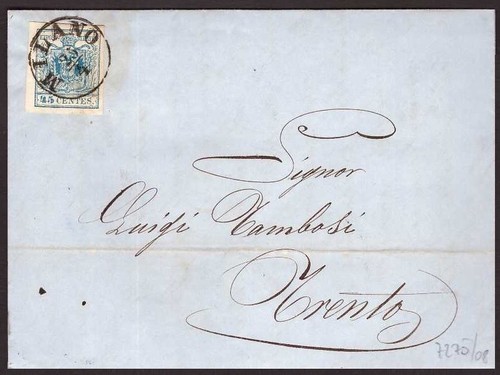 MILANO
23
45 CENTES.
Signor
Luigi Tambosi
Trento
7275/08